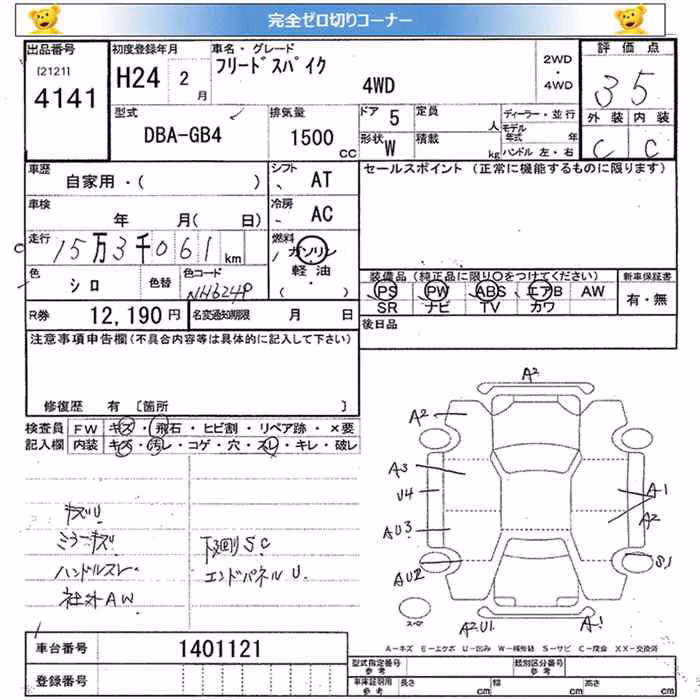 完全ゼロ切りコーナー
出品番号
[2121]
4141
初度登録年月
H24 2 月
車名・グレード
フリードスパイク
4WD
2WD
・
4WD
評価点
3 5
外装 内装
C C
型式
DBA-GB4
排気量
1500 CC
ドア 5
定員 人
形状 W
積載 kg
ディーラー・並行
モデル年式 年
ハンドル 左・右
車歴
自家用・( )
シフト
AT
セールスポイント (正常に機能するものに限ります)
車検
年 月( 日)
冷房
AC
走行
15万3千061 km
燃料
ガソリン
軽油
( ・ )
色
シロ
色替
色コード
NH624P
装備品 (純正品に限り〇をつけてください)
PS PW ABS エアB AW
SR ナビ TV カワ
新車保証書
有・無
R券 12,190 円
名変通知期限 月 日
後日品
注意事項申告欄 (不具合内容等は具体的に記入して下さい)
修復歴 有 〔箇所 〕
検査員
記入欄
FW キズ・飛石・ヒビ割・リペア跡・×要
内装 キズ・汚レ・コゲ・穴・スレ・キレ・破レ
キズU
ミラーキズ
ハンドルスレ
社外AW
下廻りSC
エンドパネルU
A2
A2
A3
U4
AU3
AU2
A1
A2
S1
A2U1
A1
スペア
A-キズ E-エクボ U-凹み W-補修跡 S-サビ C-腐食 XX-交換済
車台番号 1401121
登録番号
型式指定番号
参考
類別区分番号
参考
車庫証明用
参考
長さ cm
幅 cm
高さ cm